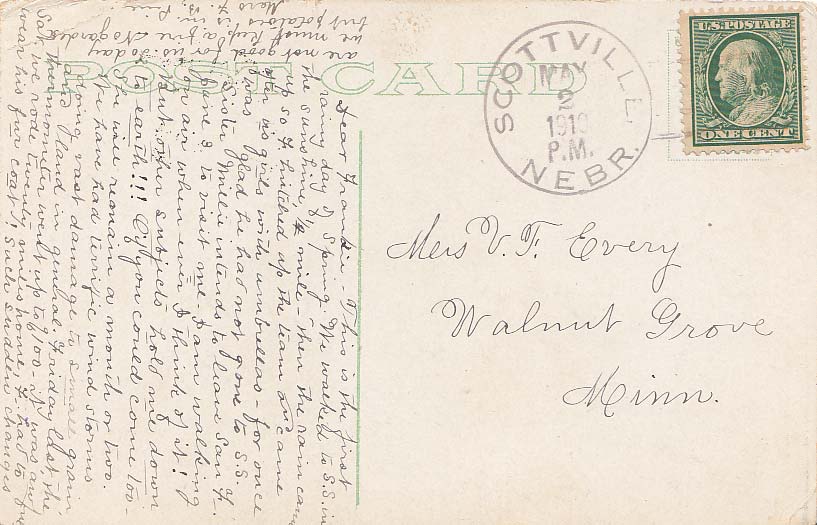 POST CARD
U.S. POSTAGE
ONE CENT
SCOTTVILLE,
MAY
2
1910
P.M.
NEBR.
Mrs V. F. Every
Walnut Grove
Minn.
Dear Frankie - This is the first
rainy day of Spring. We walked to S.S. in
the sunshine, ¼ mile - then the rain came
up so F. hitched up the team and came
after us girls with umbrellas - for once
I was glad he had not gone to S.S.
Sister Millie intends to leave San F.
June 8 to visit me - I am walking
on air when ever I think of it!
But other subjects hold me down
to earth!!! If you could come too -
She will remain a month or two.
We have had terrific wind storms
doing vast damage to small grain
and land in general. Friday last the
thermometer went up to 100. It was an
Sat. we rode twenty miles home, F. had to
wear his fur coat! Such sudden changes
are not good for us. Today
we must Rub a fire. No garden
but potatoes is in.